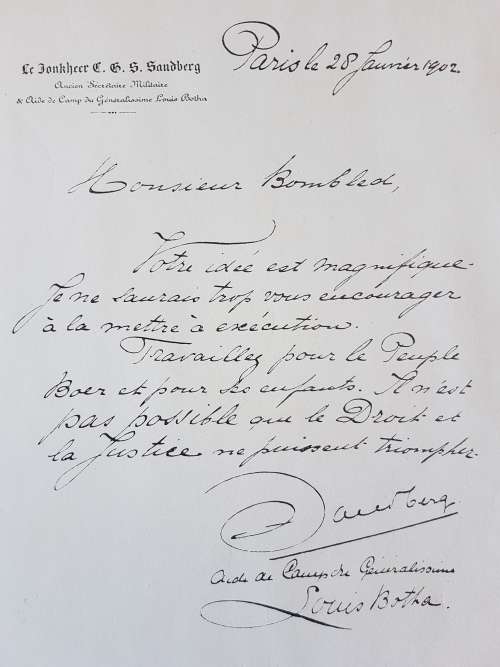 Le Jonkheer C. G. S. Sandberg
Ancien Secrétaire Militaire
& Aide de Camp du Généralissime Louis Botha
Paris le 28 Janvier 1902
Monsieur Bombled,
Votre idée est magnifique.
Je ne saurais trop vous encourager
à la mettre à exécution.
Travaillez pour le Peuple
Boer et pour ses enfants. Il n'est
pas possible que le Droit et
la Justice ne puissent triompher.
Sandberg.
Aide de Camp du Généralissime
Louis Botha.